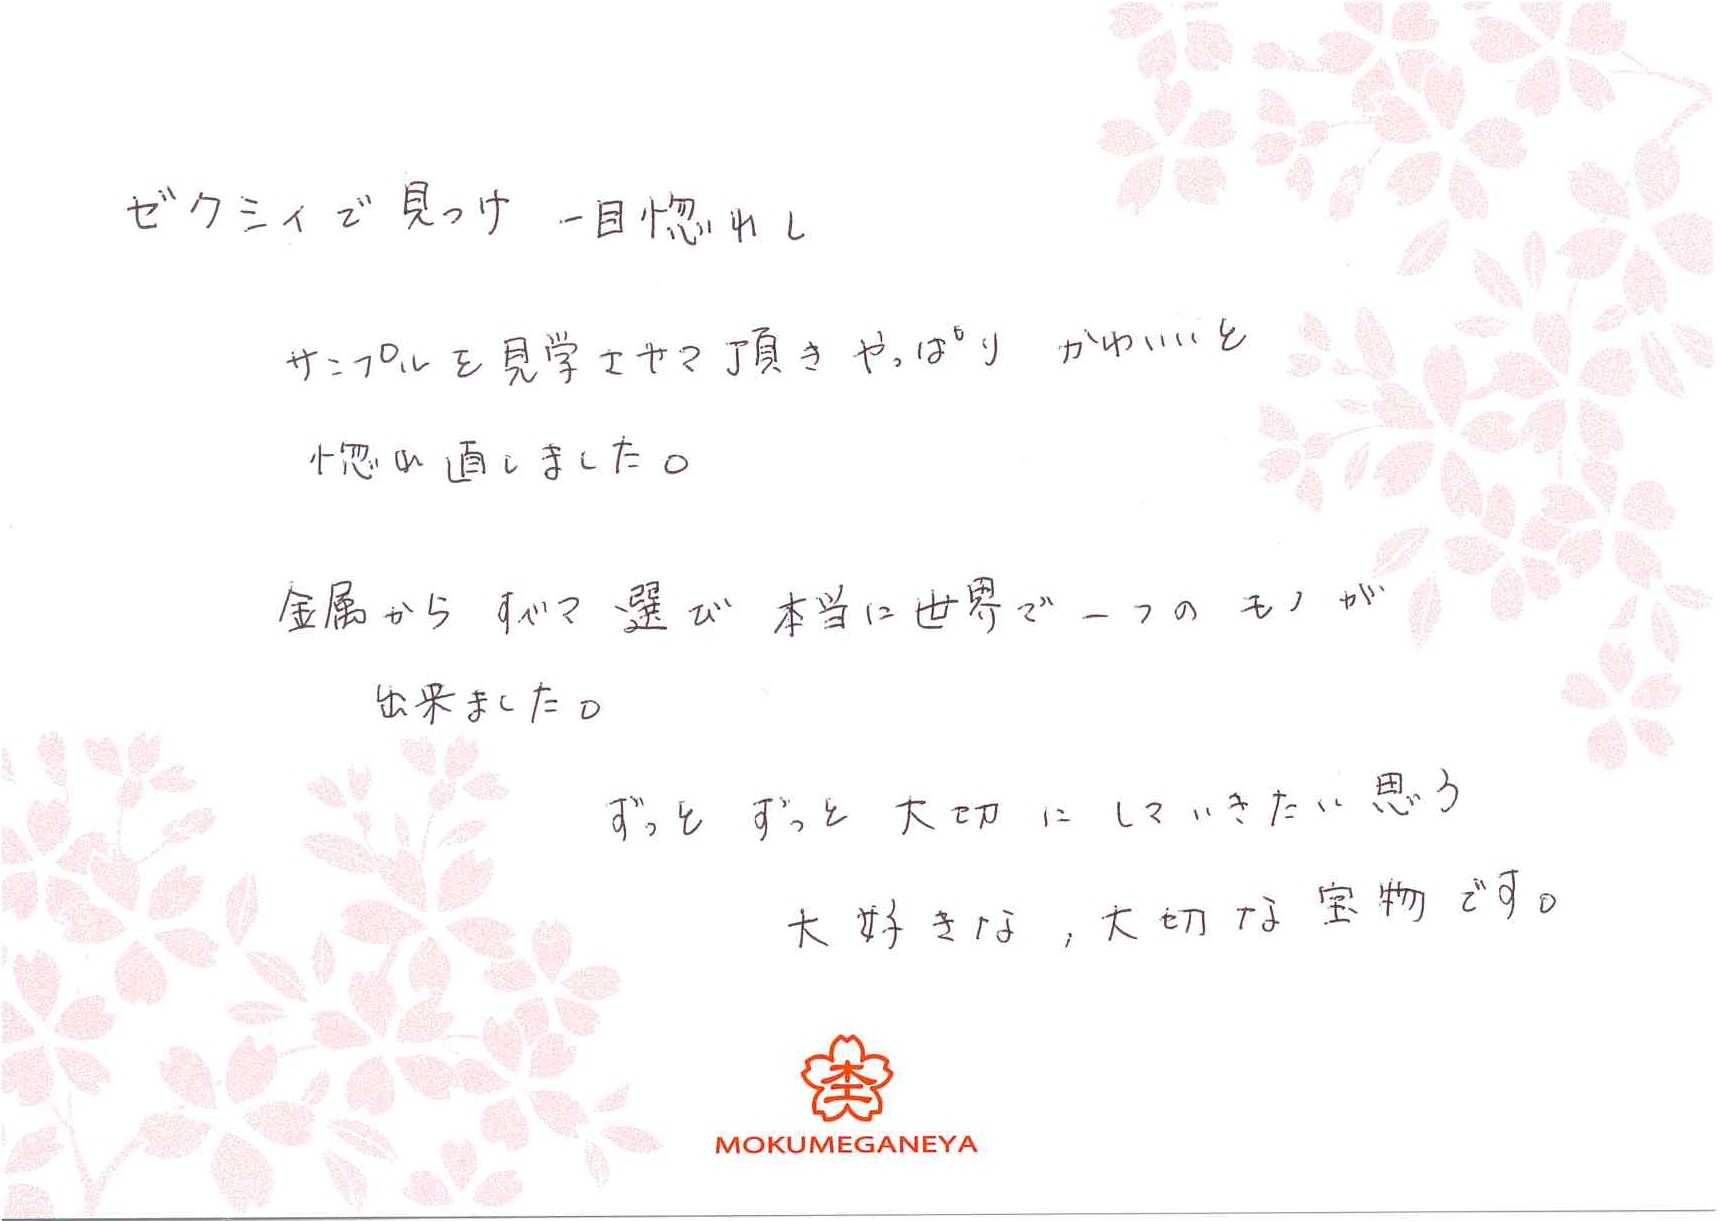 ゼクシィで見つけ 一目惚れし
サンプルを見学させて頂き やっぱり かわいいと
惚れ直しました。
金属から すべて 選び 本当に世界で一つの モノが
出来ました。
ずっと ずっと 大切に していきたい思う
大好きな, 大切な宝物です。
MOKUMEGANEYA